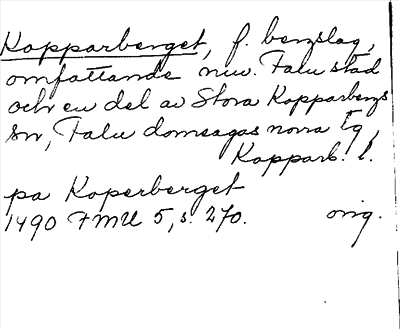 Kopparberget, f. bergslag,
omfattande nuv. Falu stad
och en del av Stora Kopparbergs
sn, Falu domsagas norra tg,
Kopparb. l.
pa Koperberget
1490 FMU 5, s. 270. orig.